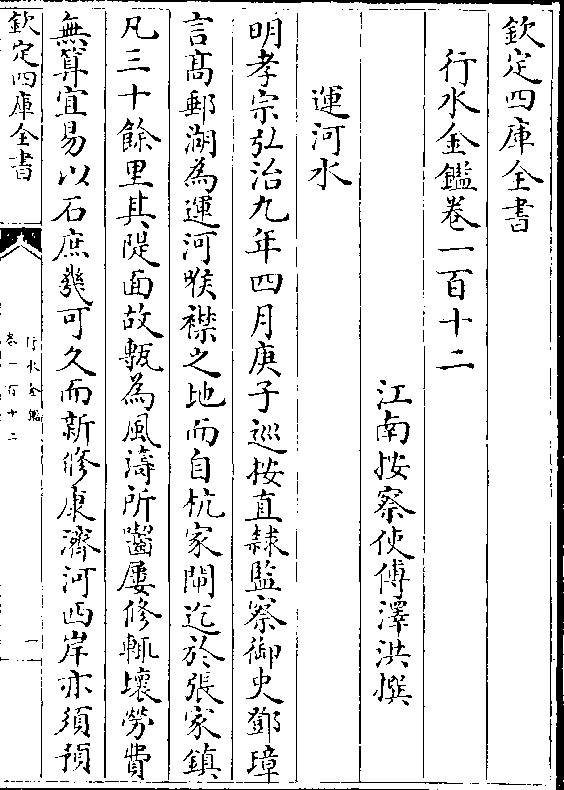 欽定四庫全書
行水金鑑卷一百十二
江南按察使傅澤洪撰
運河水
明孝宗弘治九年四月庚子巡按直隸監察御史鄧璋
言髙郵湖為運河喉襟之地而自杭家閘迄於張家鎮
凡三十餘里其隄面故甎為風濤所齧屢修輒壞勞費
無算宜易以石庶幾可久而新修康濟河西岸亦須預
欽定四庫全書
行水金鑑
卷一百十二
一